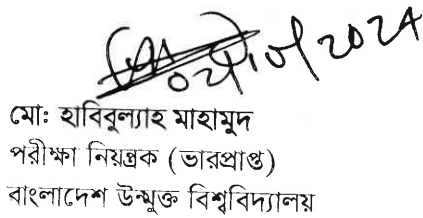 মো: হাবিবুল্যাহ মাহামুদ
পরীক্ষা নিয়ন্ত্রক (ভারপ্রাপ্ত)
বাংলাদেশ উন্মুক্ত বিশ্ববিদ্যালয়